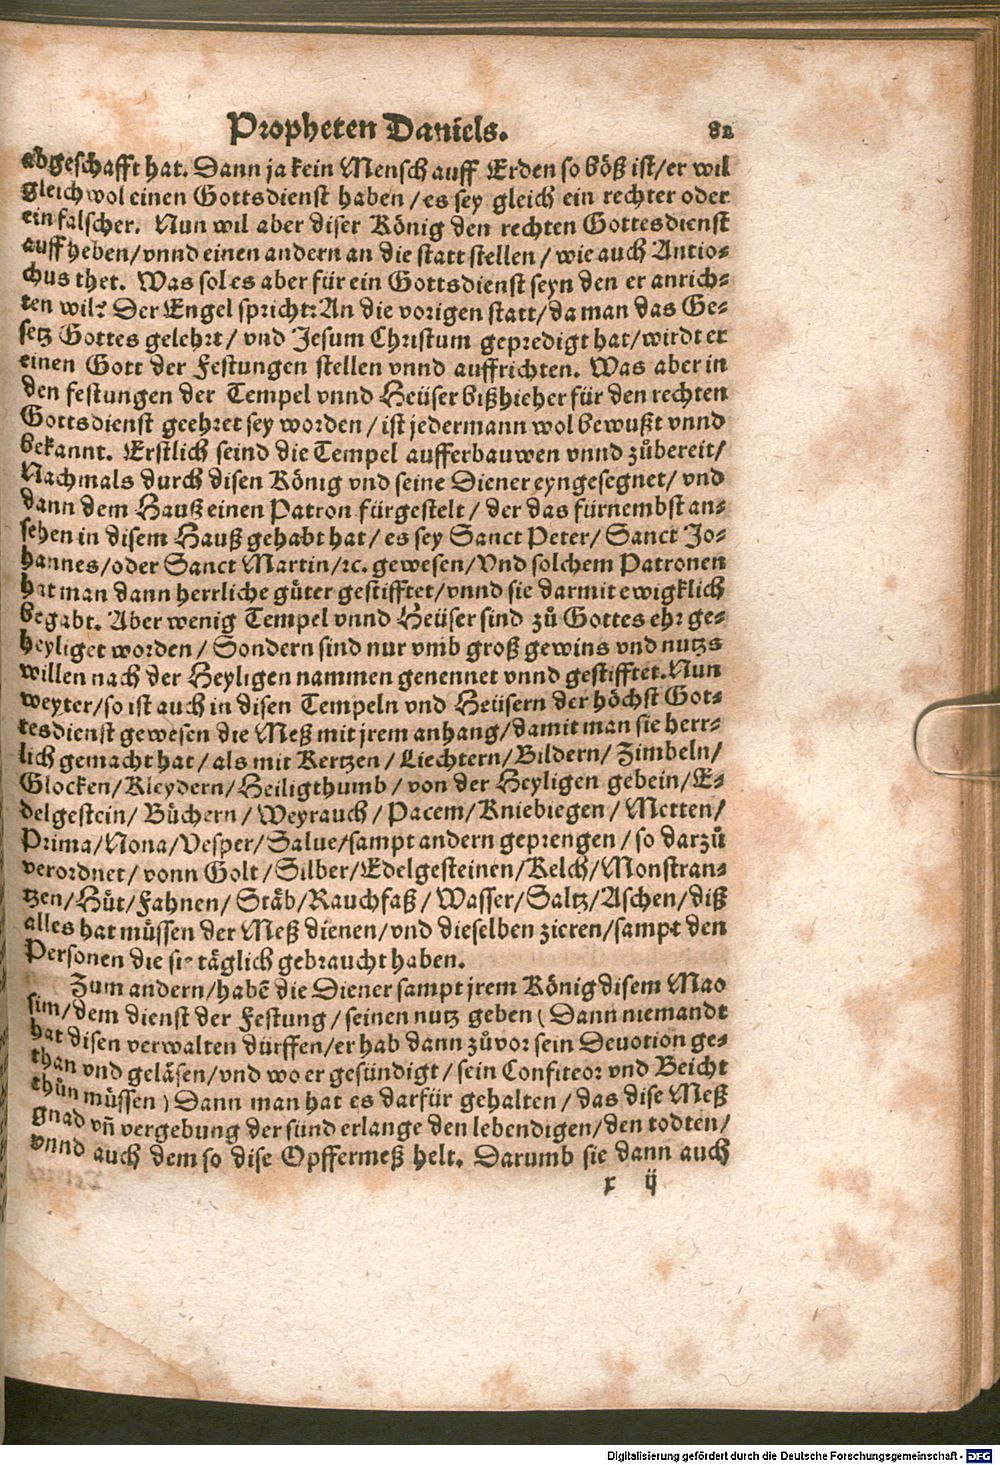 Propheten Daniels. 82
abgeschafft hat. Dann ja kein Mensch auff Erden so böß ist/er wil
gleichwol einen Gottsdienst haben/es sey gleich ein rechter oder
ein falscher. Nun wil aber diser König den rechten Gottesdienst
auffheben/vnnd einen andern an die statt stellen/wie auch Antio-
chus thet. Was sol es aber für ein Gottsdienst seyn den er anrich-
ten wil? Der Engel spricht: An die vorigen statt/da man das Ge-
setz Gottes gelehrt/vnd Jesum Christum gepredigt hat/wirdt er
einen Gott der Festungen stellen vnnd auffrichten. Was aber in
den festungen der Tempel vnnd Heüser bißhieher für den rechten
Gottsdienst geehret sey worden/ist jedermann wol bewußt vnnd
bekannt. Erstlich seind die Tempel aufferbauwen vnnd zůbereit/
Nachmals durch disen König vnd seine Diener eyngesegnet/vnd
dann dem Hauß einen Patron fürgestelt/der das fürnembst an-
sehen in disem Hauß gehabt hat/es sey Sanct Peter/Sanct Jo-
hannes/oder Sanct Martin/ꝛc. gewesen/Vnd solchem Patronen
hat man dann herrliche güter gestifftet/vnnd sie darmit ewigklich
begabt. Aber wenig Tempel vnnd Heüser sind zů Gottes ehr ge-
heyliget worden/Sondern sind nur vmb groß gewins vnd nutzs
willen nach der Heyligen nammen genennet vnnd gestifftet. Nun
weyter/so ist auch in disen Tempeln vnd Heüsern der höchst Got-
tesdienst gewesen die Meß mit jrem anhang/damit man sie herr-
lich gemacht hat/als mit Kertzen/Liechtern/Bildern/Zimbeln/
Glocken/Kleydern/Heiligthumb/von der Heyligen gebein/E-
delgestein/Büchern/Weyrauch/Pacem/Kniebiegen/Metten/
Prima/Nona/Vesper/Salue/sampt andern geprengen/so darzů
verordnet/vonn Golt/Silber/Edelgesteinen/Kelch/Monstran-
tzen/Hüt/Fahnen/Stäb/Rauchfaß/Wasser/Saltz/Aschen/diß
alles hat müssen der Meß dienen/vnd dieselben zieren/sampt den
Personen die sie täglich gebraucht haben.
Zum andern/habẽ die Diener sampt jrem König disem Mao
sim/dem dienst der Festung/seinen nutz geben (Dann niemandt
hat disen verwalten dürffen/er hab dann zůvor sein Devotion ge-
than vnd geläsen/vnd wo er gesündigt/sein Confiteor vnd Beicht
thůn müssen) Dann man hat es darfür gehalten/das dise Meß
gnad vñ vergebung der sünd erlange den lebendigen/den todten/
vnnd auch dem so dise Opffermeß helt. Darumb sie dann auch
x ij
Digitalisierung gefördert durch die Deutsche Forschungsgemeinschaft - DFG